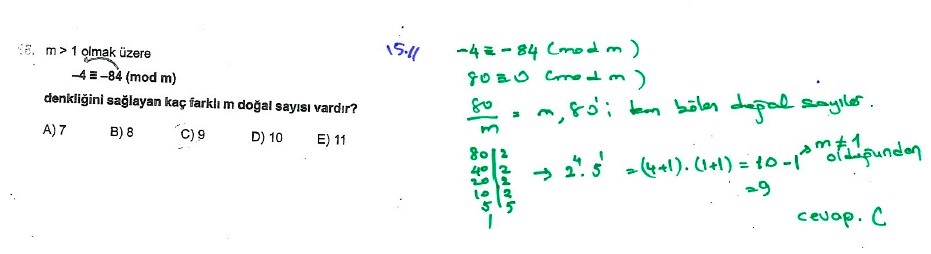 m > 1 olmak üzere
-4 ≡ -84 (mod m)
denkliğini sağlayan kaç farklı m doğal sayısı vardır?
A) 7 B) 8 C) 9 D) 10 E) 11
15-11
-4 ≡ -84 (mod m)
80 ≡ 0 (mod m)
80/m = m, 80'i tam bölen doğal sayılar.
80 | 2
40 | 2
20 | 2
10 | 2
5 | 5
1
→ 2⁴. 5¹ = (4+1). (1+1) = 10 - 1 → m ≠ 1 olduğundan
= 9
cevap. C